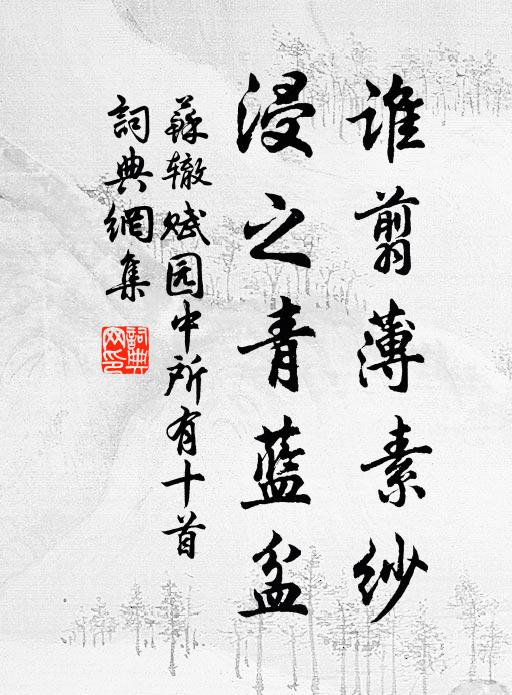 谁翦薄素纱
浸之青蓝盆
蘇辙赋园中所有十首
詞典網集
詞典网印